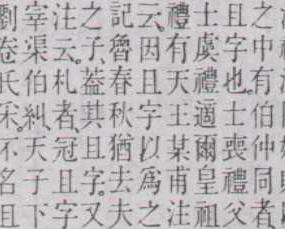 之中有伯仲同者
且字也士喪禮父
士虞禮適爾皇祖
禮有天王某甫注
云因且字以爲之
記魯春秋猶去夫
之子葢其且字又
注云札者冠且字
宰渠伯糾天子下
劉卷氏采不名且